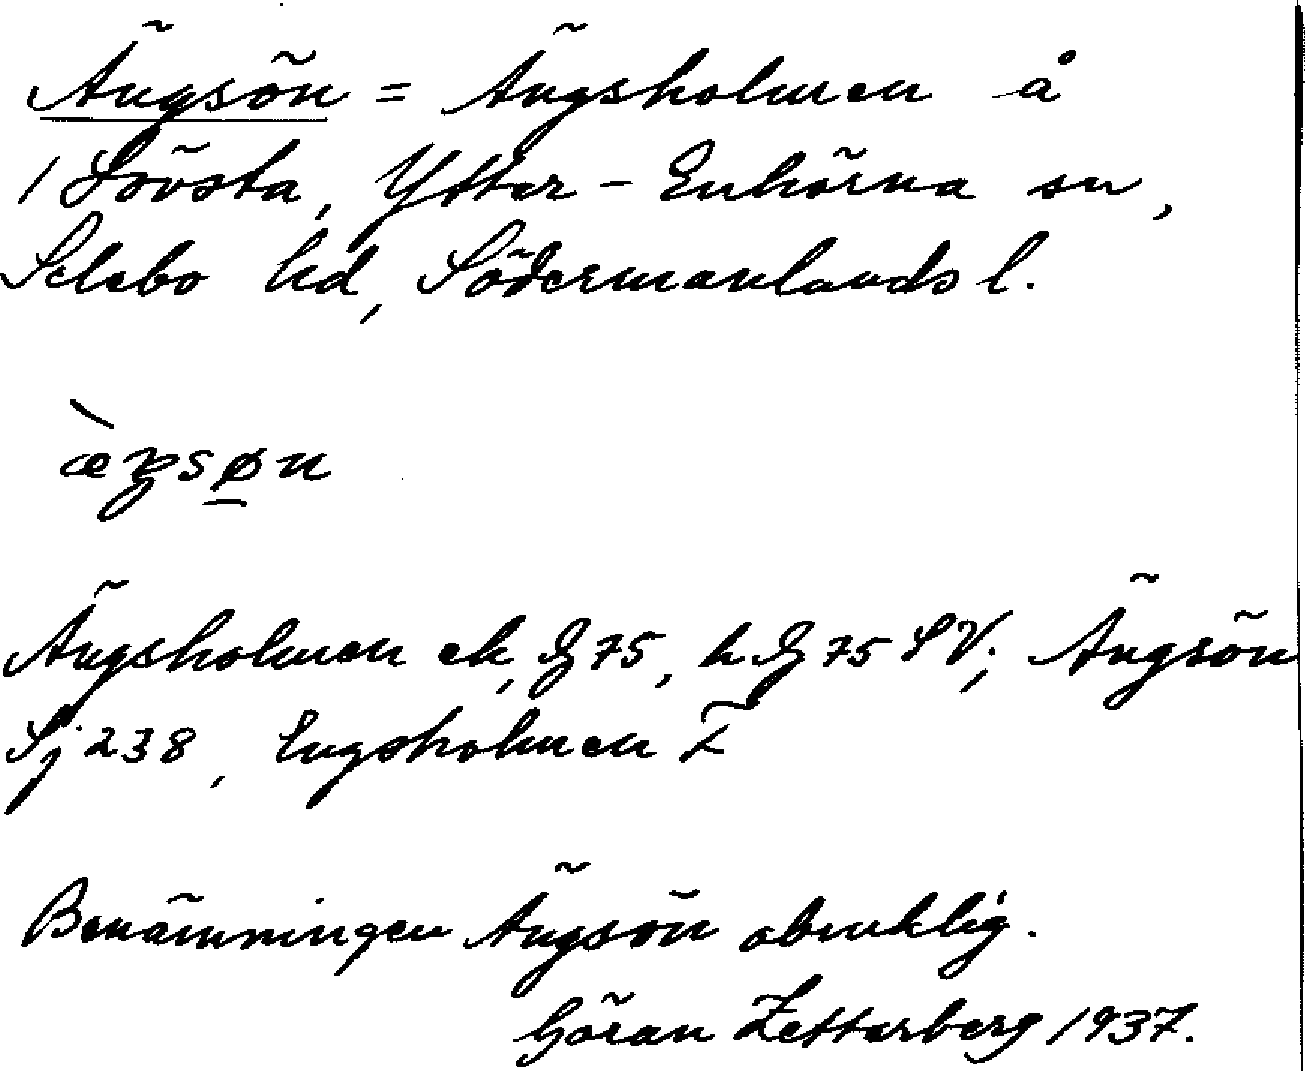 Ängsön = Ängsholmen å
1 Lövsta, Ytter-Enhörna sn,
Selebo hd, Södermanlands l.
Ängsholmen ek, G 75, h. G 75 SV; Ängsön
Sj 238, Engsholmen
Benämningen Ängsön obruklig.
Göran Zetterberg 1937.